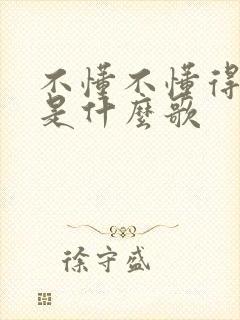 不懂不懂得
是什麼歌
徐守盛